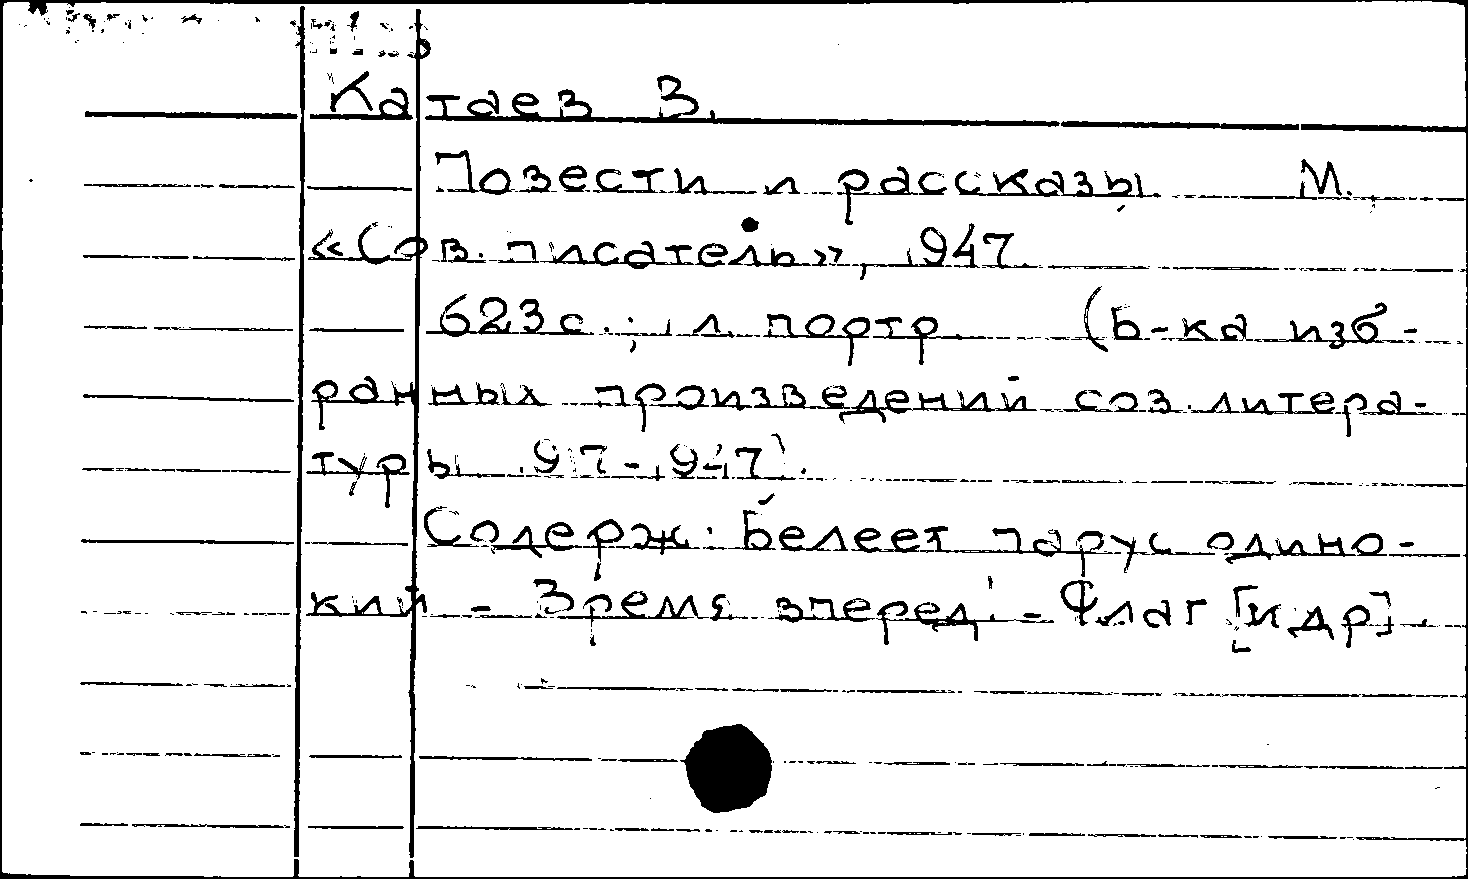 Катаев В.
Повести и рассказы. М.,
«Сов. писатель», 1947.
623 с.; 1 л. портр. (Б-ка изб-
ранных произведений сов. литера-
туры 1917-1947).
Содерж: Белеет парус одино-
кий. - Время вперед! - Флаг [и др].